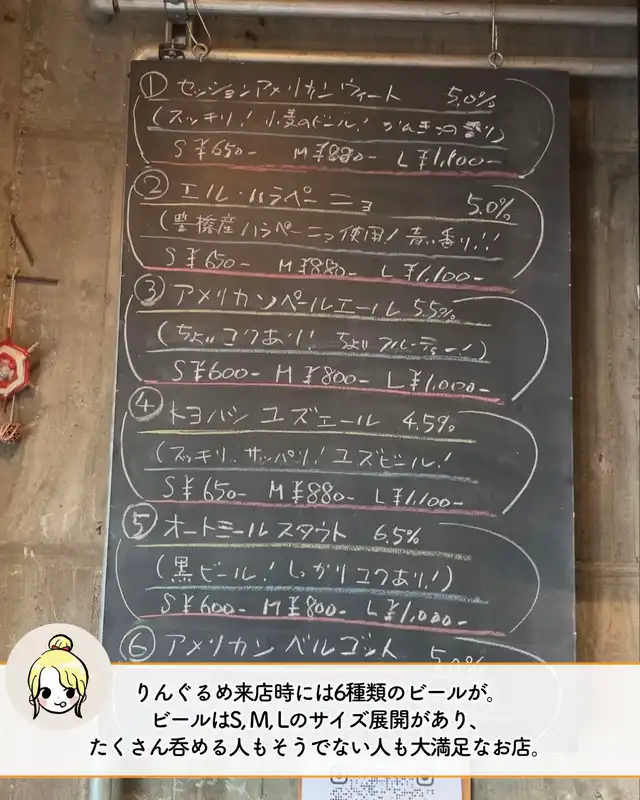 ① セッションアメリカンウィート 5.0%
(スッキリ! 小麦のビール! かんきつの香り)
S ¥650- M ¥880- L ¥1,100-
② エル・ハラペーニョ 5.0%
(豊橋産ハラペーニョ使用! 青い香り!!)
S ¥650- M ¥880- L ¥1,100-
③ アメリカンペールエール 5.5%
(ちょいコクあり! ちょいフルーティー!)
S ¥600- M ¥800- L ¥1,000-
④ トヨハシ ユズエール 4.5%
(スッキリ、サッパリ! ユズビール!
S ¥650- M ¥880- L ¥1,100-
⑤ オートミールスタウト 6.5%
(黒ビール! しっかりコクあり!)
S ¥600- M ¥800- L ¥1,000-
⑥ アメリカン ベルゴット
りんぐるめ来店時には6種類のビールが。
ビールはS,M,Lのサイズ展開があり、
たくさん呑める人もそうでない人も大満足なお店。